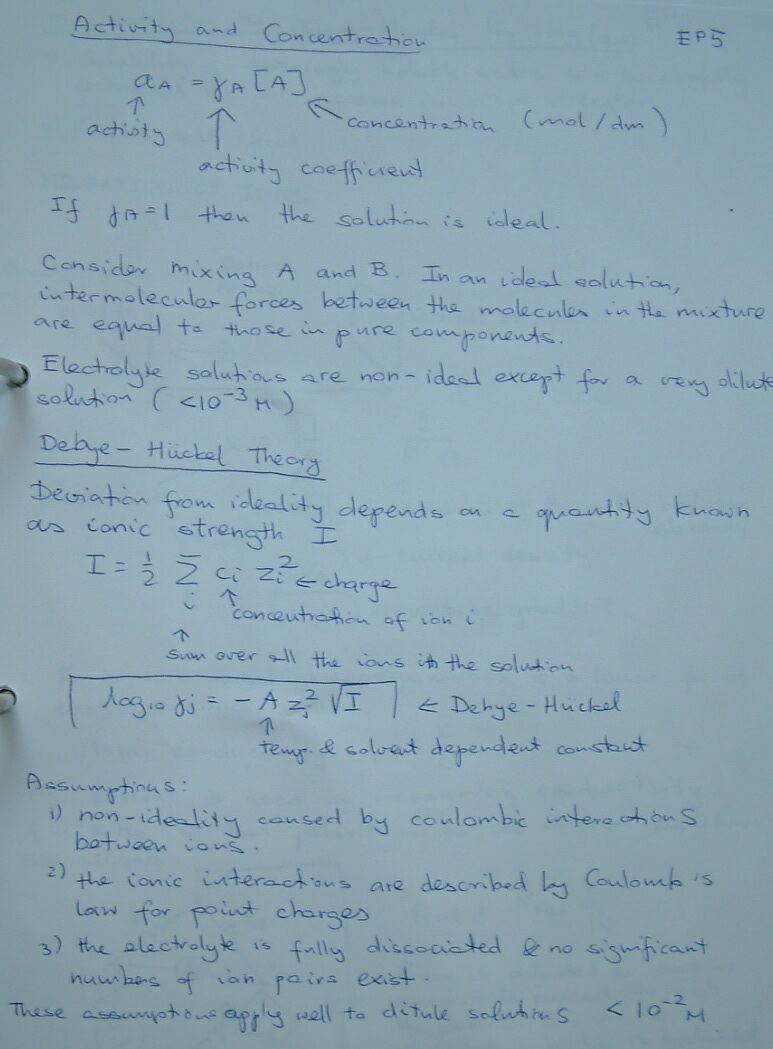 Activity and Concentration EP5
aA = γA [A]
↑ activity ↑ ↖ concentration (mol/dm)
activity coefficient
If γA=1 then the solution is ideal.
Consider mixing A and B. In an ideal solution,
intermolecular forces between the molecules in the mixture
are equal to those in pure components.
Electrolyte solutions are non-ideal except for a very dilute
solution (<10⁻³ M)
Debye-Hückel Theory
Deviation from ideality depends on a quantity known
as ionic strength I
I = ½ Σi ci zi² ← charge
↑ concentration of ion i
↑
sum over all the ions in the solution
log₁₀ γj = - A zj² √I ← Debye-Hückel
↑
temp. & solvent dependent constant
Assumptions:
1) non-ideality caused by coulombic interactions
between ions.
2) the ionic interactions are described by Coulomb's
law for point charges
3) the electrolyte is fully dissociated & no significant
numbers of ion pairs exist.
These assumptions apply well to ditule solutions < 10⁻² M.